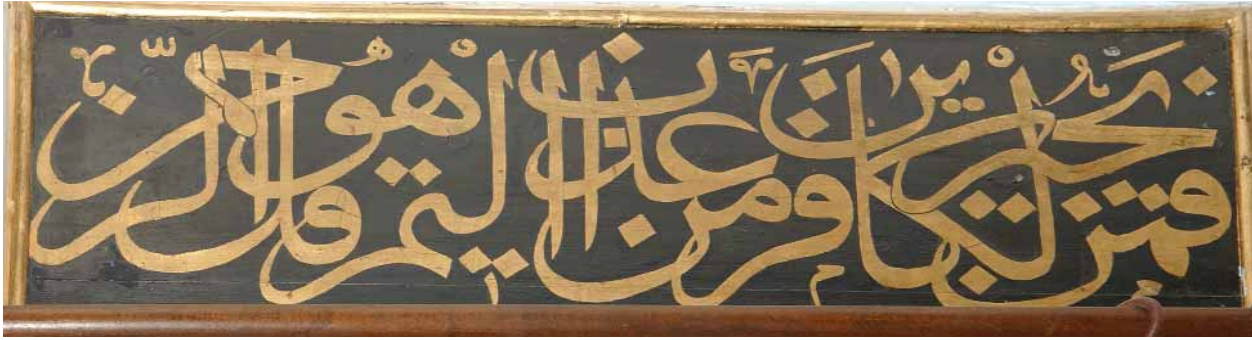 فمن يجير الكافرين من عذاب اليم قل هو الرحمن